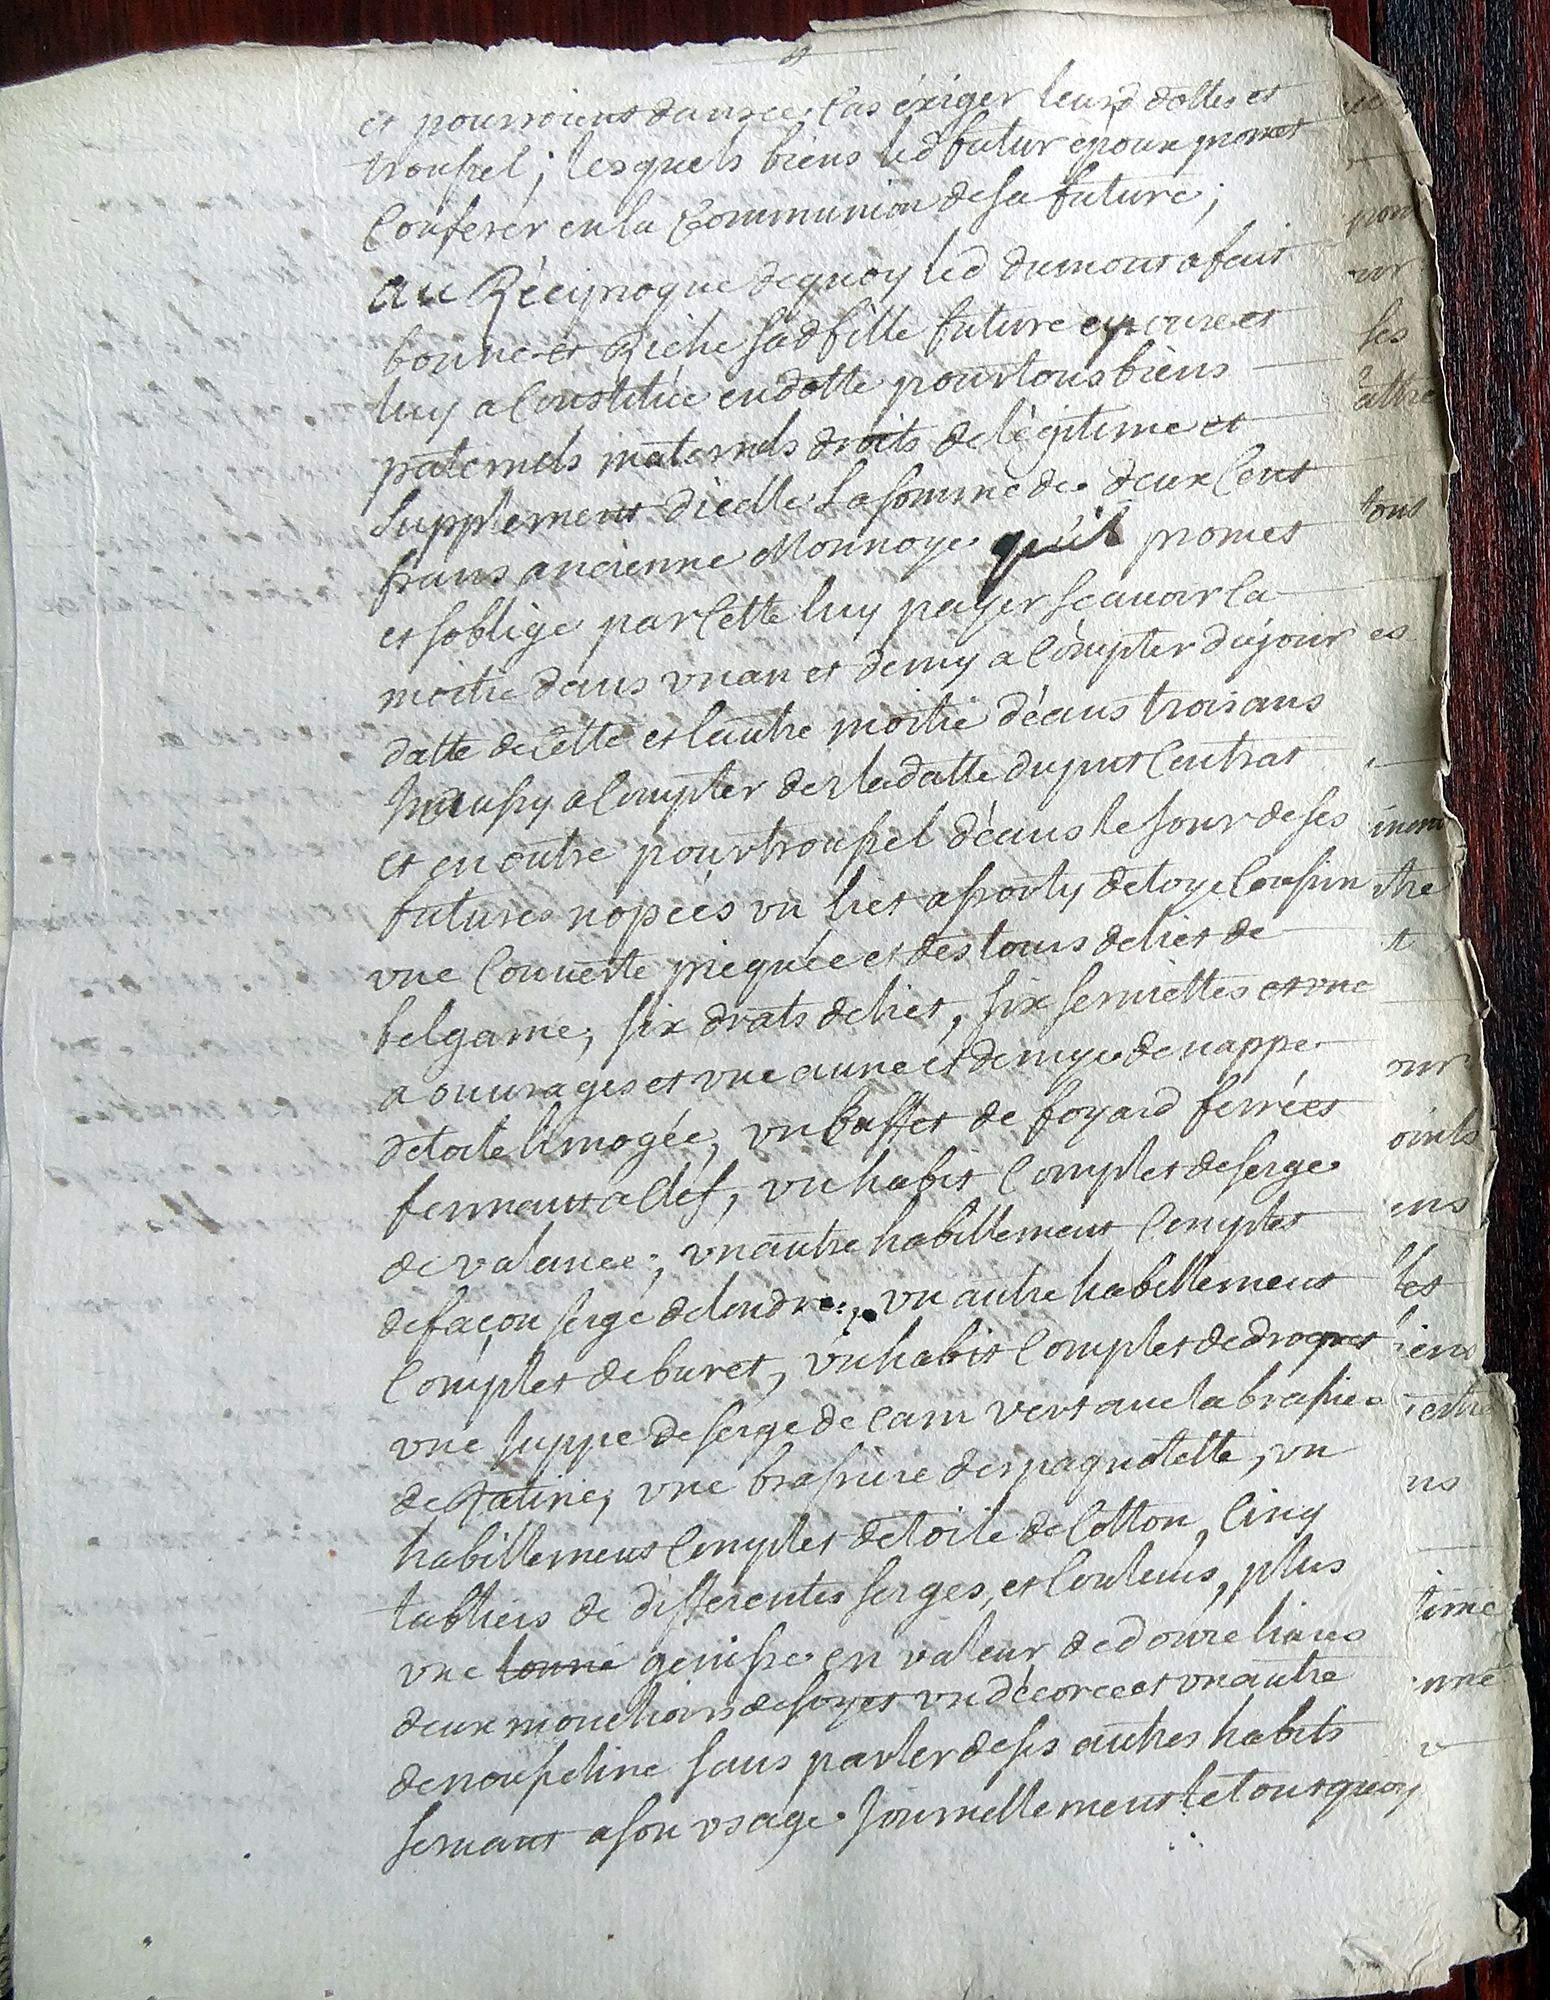 et pourroient dans ce cas éxiger leurd dottes et
troussel; lesquels biens led futur époux promet
Conferer en la Communion de sa future;
au Réciproque de quoy led dumont a fait
bonne et Riche sad fille future epouse et
luy a Constitué en dotte pour tous biens
paternels maternels droits de légitime et
Supplement d'icelle La somme de deux Cent
frans ancienne Monnoye qu'il promet
et soblige par Cette luy payer scavoir La
moitié dans un an et demy a Compter du jour
datte de Cette et l'autre moitié déans trois ans
aussy a Compter de la datte du pnt Contrat
et en outre pour troussel déans le jour de ses
futures nopces un liet assorty de toye Coussin
une Couverte piequée et des tours de liet de
belgame; six drats de liet, six serviettes et une
a ouvrages et une aune et demye de nappe
de toile limogée, un buffet de foyard ferré et
fermant a clef, un habit Complet de serge
de valance; un autre habillement Complet
de façon serge de londre, un autre habillement
Complet de buret, un habit Complet de droguet
une Juppe de serge de Cam vert avec la brassiere
de Ratine; une brassiere despagnolette, un
habillement Complet de toile de Cotton, Cinq
tabliers de differentes serges, et Couleurs, plus
une genisse en valeur de douze livres
deux mouchoirs de soyes un décorce et un autre
de mousseline sans parler de ses autres habits
servant a son usage Journellement le tout quoy